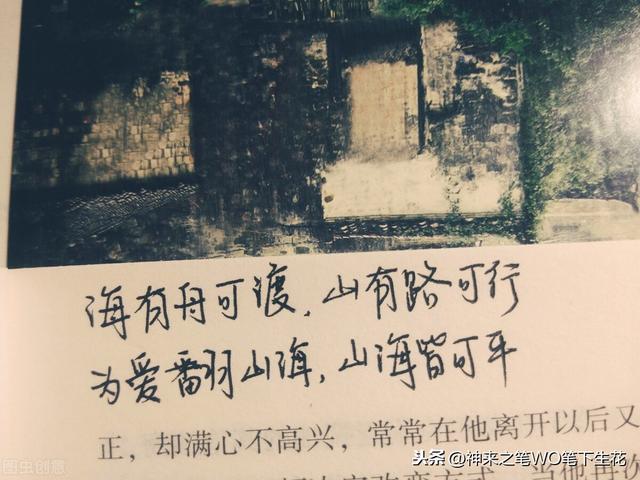 海有舟可渡，山有路可行
为爱翻山海，山海皆可平
正，却满心不高兴，常常在他离开以后又
头条 @神来之笔WO笔下生花
图虫创意